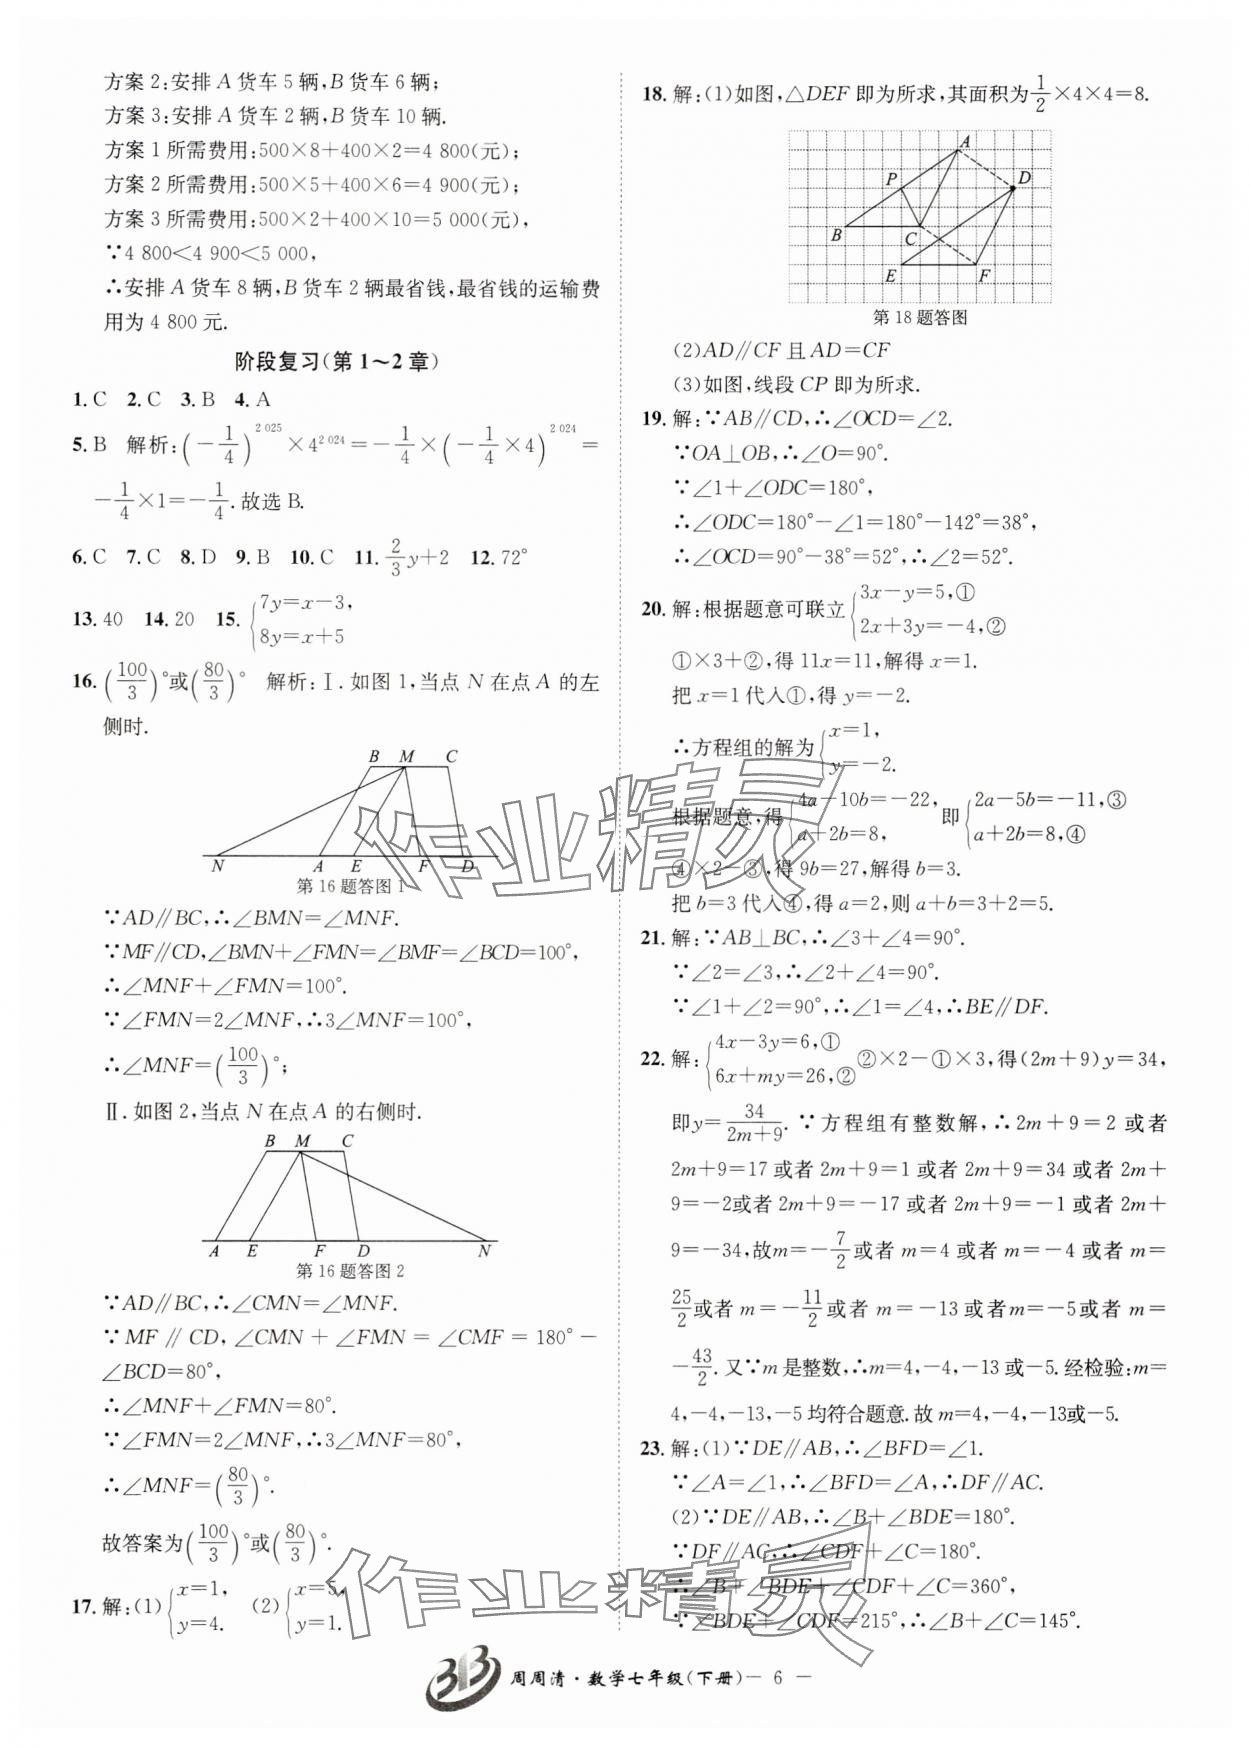 方案2:安排A货车5辆,B货车6辆;
方案3:安排A货车2辆,B货车10辆.
方案1所需费用:500×8+400×2=4 800(元);
方案2所需费用:500×5+400×6=4 900(元);
方案3所需费用:500×2+400×10=5 000(元),
∵4 800<4 900<5 000,
∴安排A货车8辆,B货车2辆最省钱,最省钱的运输费
用为4 800元.
阶段复习(第1～2章)
1. C 2. C 3. B 4. A
5. B 解析:(-1/4)^2 025×4^2 024=-1/4×(-1/4×4)^2 024=
-1/4×1=-1/4.故选B.
6. C 7. C 8. D 9. B 10. C 11. 2/3y+2 12. 72°
13. 40 14. 20 15. {7y=x-3,
8y=x+5
16. (100/3)°或(80/3)° 解析:Ⅰ.如图1,当点N在点A的左
侧时.
B M C
N A E F D
第16题答图1
∵AD∥BC,∴∠BMN=∠MNF.
∵MF∥CD,∠BMN+∠FMN=∠BMF=∠BCD=100°,
∴∠MNF+∠FMN=100°.
∵∠FMN=2∠MNF,∴3∠MNF=100°,
∴∠MNF=(100/3)°;
Ⅱ.如图2,当点N在点A的右侧时.
B M C
A E F D N
第16题答图2
∵AD∥BC,∴∠CMN=∠MNF.
∵MF∥CD,∠CMN+∠FMN=∠CMF=180°-
∠BCD=80°,
∴∠MNF+∠FMN=80°.
∵∠FMN=2∠MNF,∴3∠MNF=80°,
∴∠MNF=(80/3)°.
故答案为(100/3)°或(80/3)°.
17. 解:(1){x=1,
y=4. (2){x=5,
y=1.
18. 解:(1)如图,△DEF即为所求,其面积为1/2×4×4=8.
A
P D
B C
E F
第18题答图
(2)AD∥CF且AD=CF
(3)如图,线段CP即为所求.
19. 解:∵AB∥CD,∴∠OCD=∠2.
∵OA⊥OB,∴∠O=90°.
∵∠1+∠ODC=180°,
∴∠ODC=180°-∠1=180°-142°=38°,
∴∠OCD=90°-38°=52°,∴∠2=52°.
20. 解:根据题意可联立{3x-y=5,①
2x+3y=-4,②
①×3+②,得11x=11,解得x=1.
把x=1代入①,得y=-2.
∴方程组的解为{x=1,
y=-2.
根据题意,得{4a-10b=-22,
a+2b=8, 即{2a-5b=-11,③
a+2b=8,④
④×2-③,得9b=27,解得b=3.
把b=3代入④,得a=2,则a+b=3+2=5.
21. 解:∵AB⊥BC,∴∠3+∠4=90°.
∵∠2=∠3,∴∠2+∠4=90°.
∵∠1+∠2=90°,∴∠1=∠4,∴BE∥DF.
22. 解:{4x-3y=6,①
6x+my=26,② ②×2-①×3,得(2m+9)y=34,
即y=34/(2m+9).∵方程组有整数解,∴2m+9=2或者
2m+9=17或者2m+9=1或者2m+9=34或者2m+
9=-2或者2m+9=-17或者2m+9=-1或者2m+
9=-34,故m=-7/2或者m=4或者m=-4或者m=
25/2或者m=-11/2或者m=-13或者m=-5或者m=
-43/2.又∵m是整数,∴m=4,-4,-13或-5.经检验:m=
4,-4,-13,-5均符合题意.故m=4,-4,-13或-5.
23. 解:(1)∵DE∥AB,∴∠BFD=∠1.
∵∠A=∠1,∴∠BFD=∠A,∴DF∥AC.
(2)∵DE∥AB,∴∠B+∠BDE=180°.
∵DF∥AC,∴∠CDF+∠C=180°.
∴∠B+∠BDE+∠CDF+∠C=360°,
∵∠BDE+∠CDF=215°,∴∠B+∠C=145°.
作业精灵
作业精灵
周周清·数学七年级(下册)— 6 —